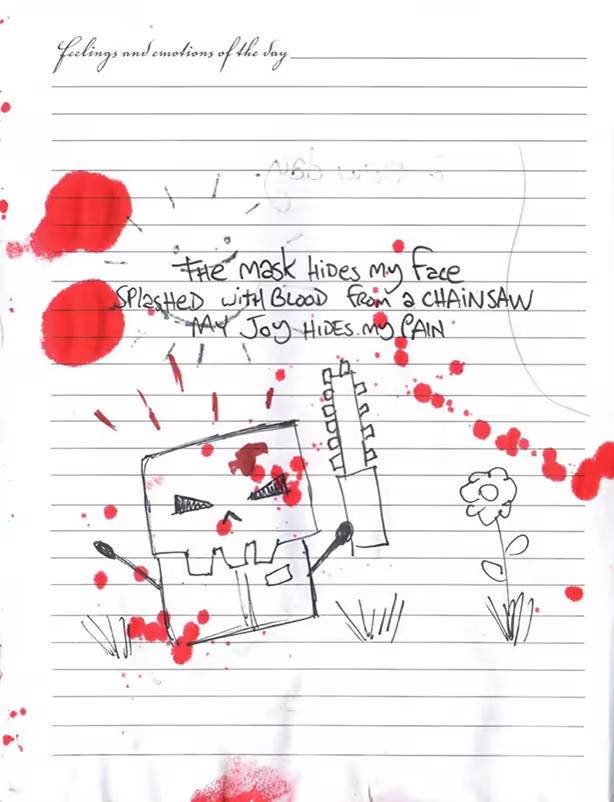 feelings and emotions of the day
THE MASK HIDES MY FACE
SPLASHED WITH BLOOD FROM a CHAINSAW
MY JOY HIDES MY PAIN